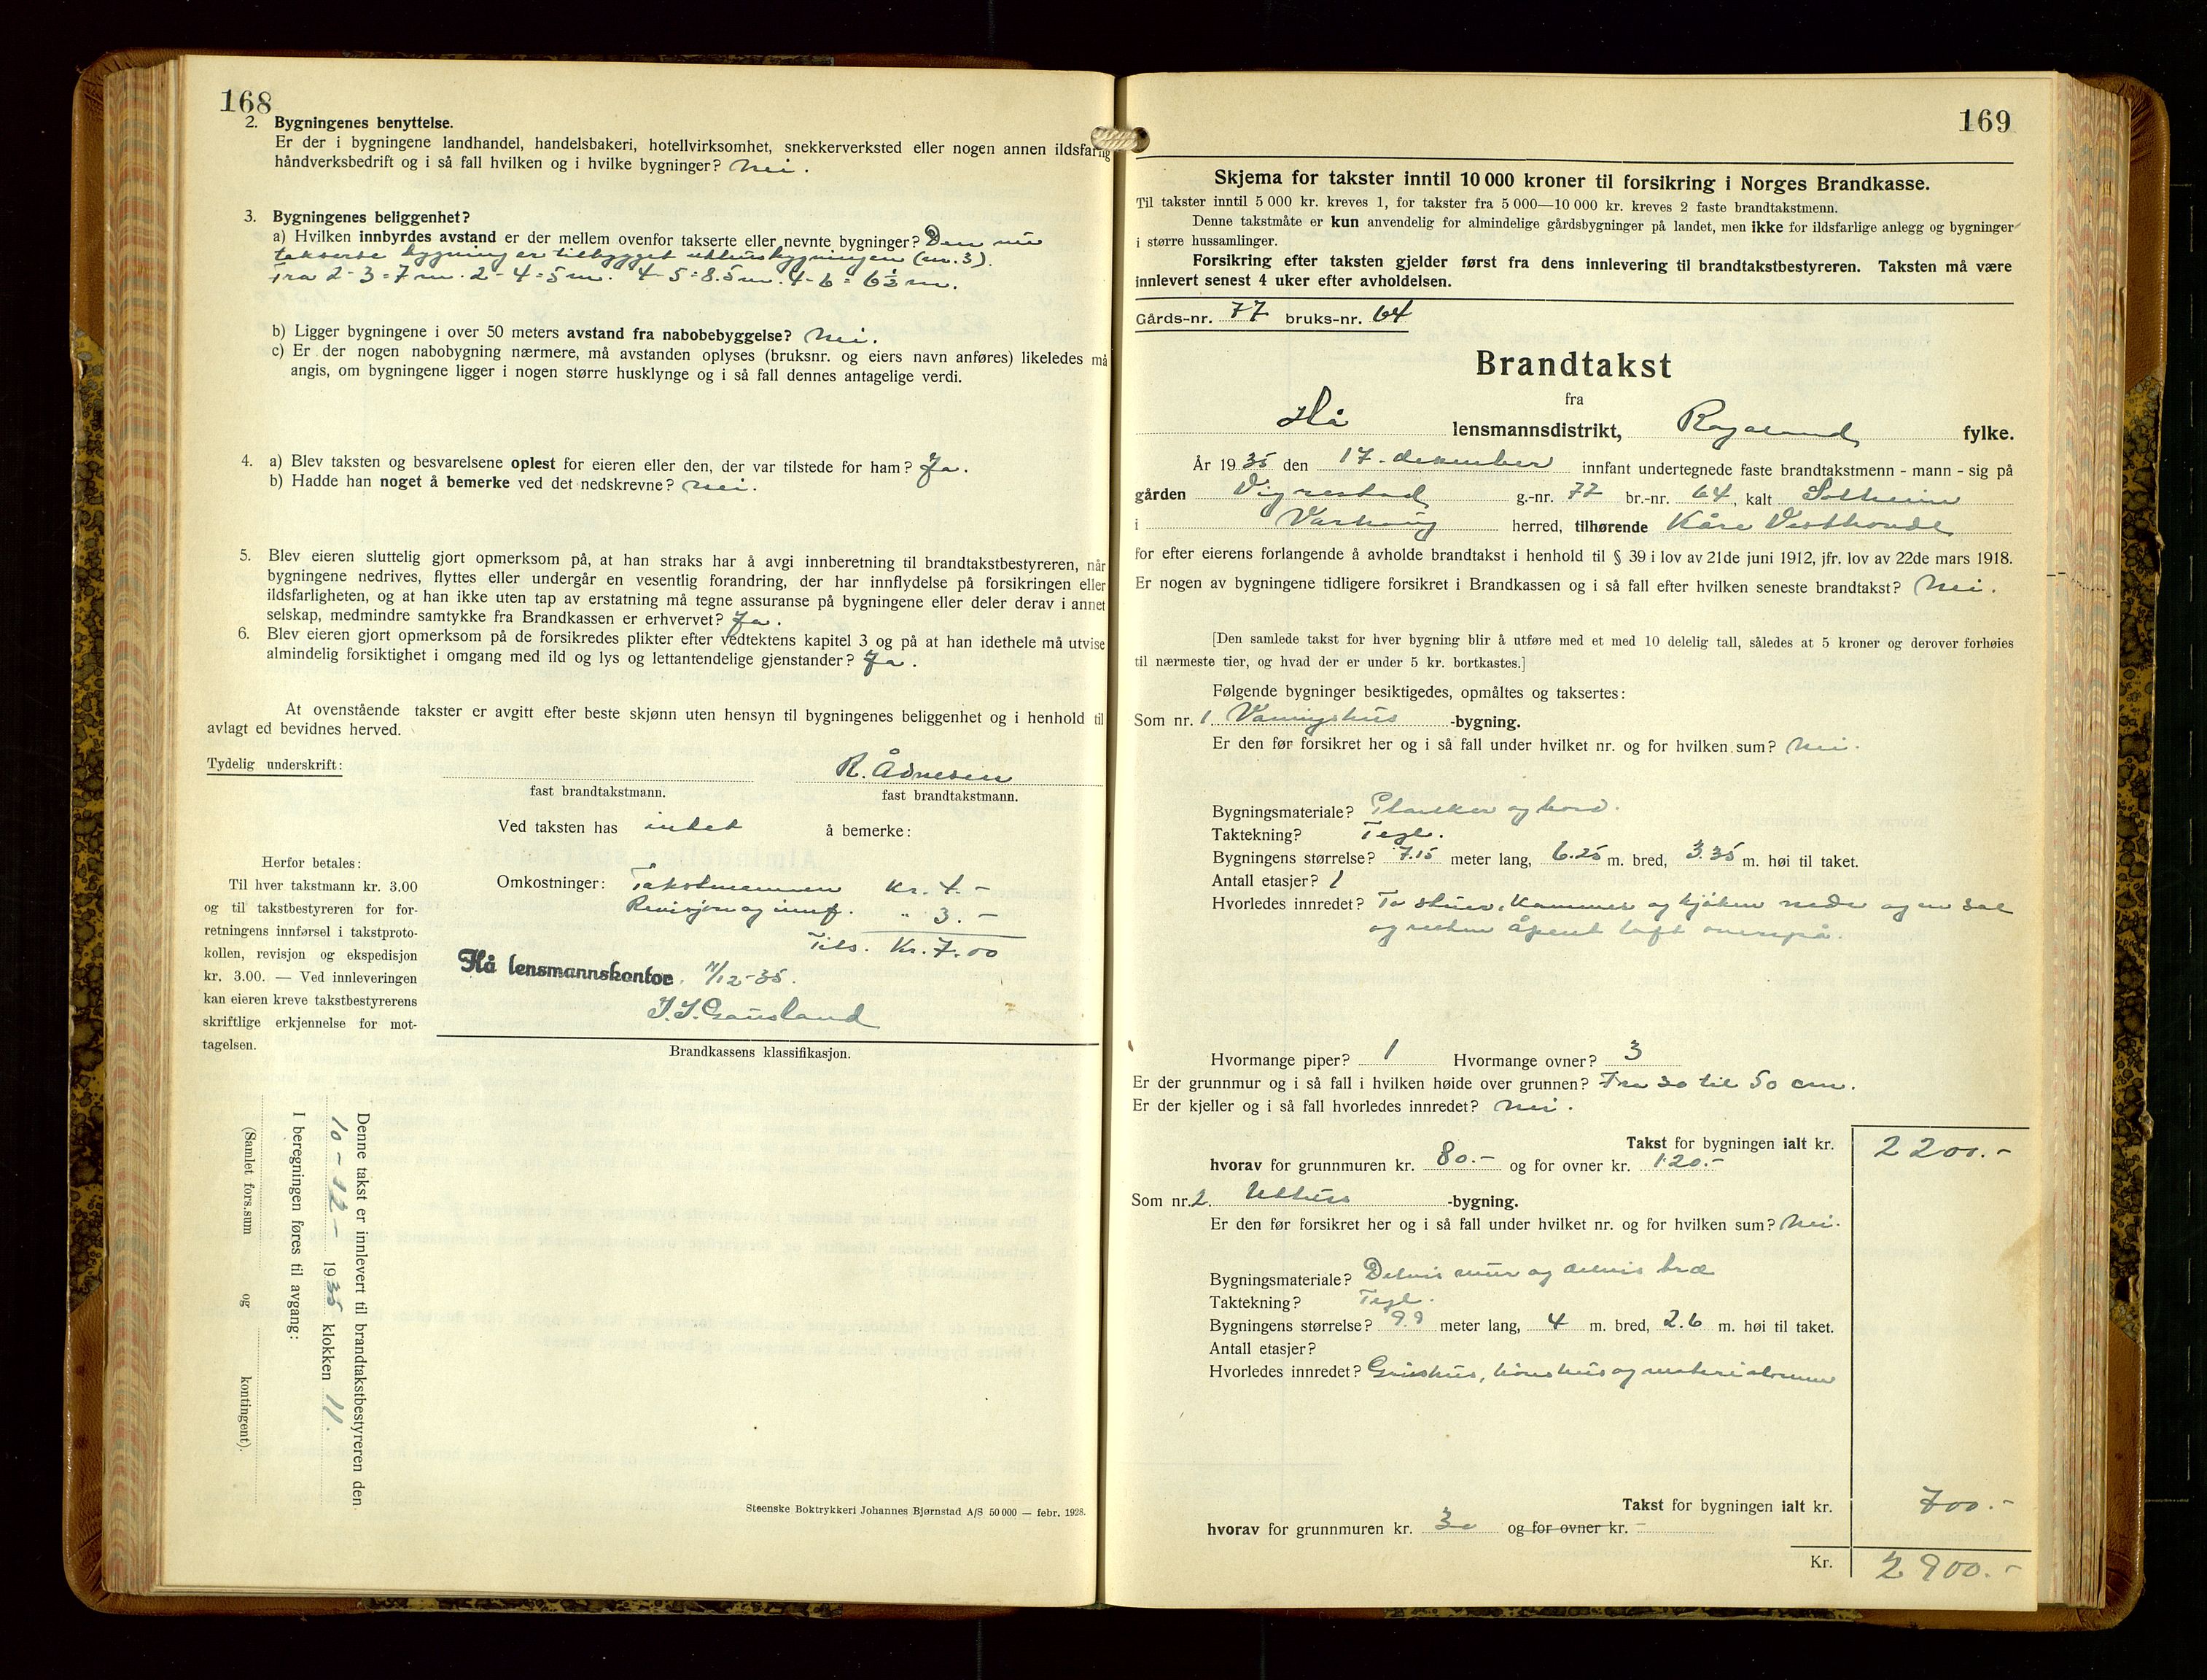 168
2. Bygningenes benyttelse.
Er der i bygningene landhandel, handelsbakeri, hotellvirksomhet, snekkerverksted eller nogen annen ildsfarlig
håndverksbedrift og i så fall hvilken og i hvilke bygninger? Nei.
3. Bygningenes beliggenhet?
a) Hvilken innbyrdes avstand er der mellem ovenfor takserte eller nevnte bygninger? Den nu
takserte bygning er tilbygget uthusbygningen (nr. 3).
Fra 2-3 = 7 m. 2-4 = 5 m. 4-5 = 8.5 m. 4-6 = 6½ m.
b) Ligger bygningene i over 50 meters avstand fra nabobebyggelse? Nei.
c) Er der nogen nabobygning nærmere, må avstanden oplyses (bruksnr. og eiers navn anføres) likeledes må
angis, om bygningene ligger i nogen større husklynge og i så fall dennes antagelige verdi.
4. a) Blev taksten og besvarelsene oplest for eieren eller den, der var tilstede for ham? Ja.
b) Hadde han noget å bemerke ved det nedskrevne? Nei.
5. Blev eieren sluttelig gjort opmerksom på, at han straks har å avgi innberetning til brandtakstbestyreren, når
bygningene nedrives, flyttes eller undergår en vesentlig forandring, der har innflydelse på forsikringen eller
ildsfarligheten, og at han ikke uten tap av erstatning må tegne assuranse på bygningene eller deler derav i annet
selskap, medmindre samtykke fra Brandkassen er erhvervet? Ja.
6. Blev eieren gjort opmerksom på de forsikredes plikter efter vedtektens kapitel 3 og på at han idethele må utvise
almindelig forsiktighet i omgang med ild og lys og lettantendelige gjenstander? Ja.
At ovenstående takster er avgitt efter beste skjønn uten hensyn til bygningenes beliggenhet og i henhold til
avlagt ed bevidnes herved.
Tydelig underskrift: R. Ådnesen
fast brandtakstmann. fast brandtakstmann.
Ved taksten has intet å bemerke:
Herfor betales:
Til hver takstmann kr. 3.00
og til takstbestyreren for for-
retningens innførsel i takstproto-
kollen, revisjon og ekspedisjon
kr. 3.00. — Ved innleveringen
kan eieren kreve takstbestyrerens
skriftlige erkjennelse for mot-
tagelsen.
Omkostninger: Takstmannen Kr. 4.-
Revisjon og innf. " 3.-
Tils. Kr. 7.00
Hå lensmannskontor. 11/12-35.
Gausland
Brandkassens klassifikasjon.
Denne takst er innlevert til brandtakstbestyreren den
10 - 12 - 1935 klokken 11.
I beregningen føres til avgang:
(Samlet fors.sum og kontingent).
Steenske Boktrykkeri Johannes Bjørnstad A/S 50 000 — febr. 1928.
169
Skjema for takster inntil 10 000 kroner til forsikring i Norges Brandkasse.
Til takster inntil 5 000 kr. kreves 1, for takster fra 5 000—10 000 kr. kreves 2 faste brandtakstmenn.
Denne takstmåte er kun anvendelig for almindelige gårdsbygninger på landet, men ikke for ildsfarlige anlegg og bygninger
i større hussamlinger.
Forsikring efter taksten gjelder først fra dens innlevering til brandtakstbestyreren. Taksten må være
innlevert senest 4 uker efter avholdelsen.
Gårds-nr. 77 bruks-nr. 64
Brandtakst
fra
Hå lensmannsdistrikt, Rogaland fylke.
År 1935 den 17. desember innfant undertegnede faste brandtakstmenn - mann - sig på
gården Vigrestad g.-nr. 77 br.-nr. 64, kalt Solheim
i Varhaug herred, tilhørende Kåre
for efter eierens forlangende å avholde brandtakst i henhold til § 39 i lov av 21de juni 1912, jfr. lov av 22de mars 1918.
Er nogen av bygningene tidligere forsikret i Brandkassen og i så fall efter hvilken seneste brandtakst? Nei.
[Den samlede takst for hver bygning blir å utføre med et med 10 delelig tall, således at 5 kroner og derover forhøies
til nærmeste tier, og hvad der er under 5 kr. bortkastes.]
Følgende bygninger besiktigedes, opmåltes og taksertes:
Som nr. 1 Våningshus -bygning.
Er den før forsikret her og i så fall under hvilket nr. og for hvilken sum? Nei.
Bygningsmateriale? Planker og bord.
Taktekning? Tegl.
Bygningens størrelse? 7.15 meter lang, 6.25 m. bred, 3.35 m. høi til taket.
Antall etasjer? 1
Hvorledes innredet? To stuer, kammer og kjøken nede og en sal
og resten åpent loft ovenpå.
Hvormange piper? 1 Hvormange ovner? 3
Er der grunnmur og i så fall i hvilken høide over grunnen? Fra 30 til 50 cm.
Er der kjeller og i så fall hvorledes innredet? Nei.
Takst for bygningen ialt kr. 2200.-
hvorav for grunnmuren kr. 80.- og for ovner kr. 120.-
Som nr. 2. Uthus -bygning.
Er den før forsikret her og i så fall under hvilket nr. og for hvilken sum? Nei.
Bygningsmateriale? Delvis mur og delvis tre
Taktekning? Tegl.
Bygningens størrelse? 9.9 meter lang, 4 m. bred, 2.6 m. høi til taket.
Antall etasjer?
Hvorledes innredet? Grishus, hønshus og materialrum
Takst for bygningen ialt kr. 700.-
hvorav for grunnmuren kr. 30 og for ovner kr.
Kr. 2900.-